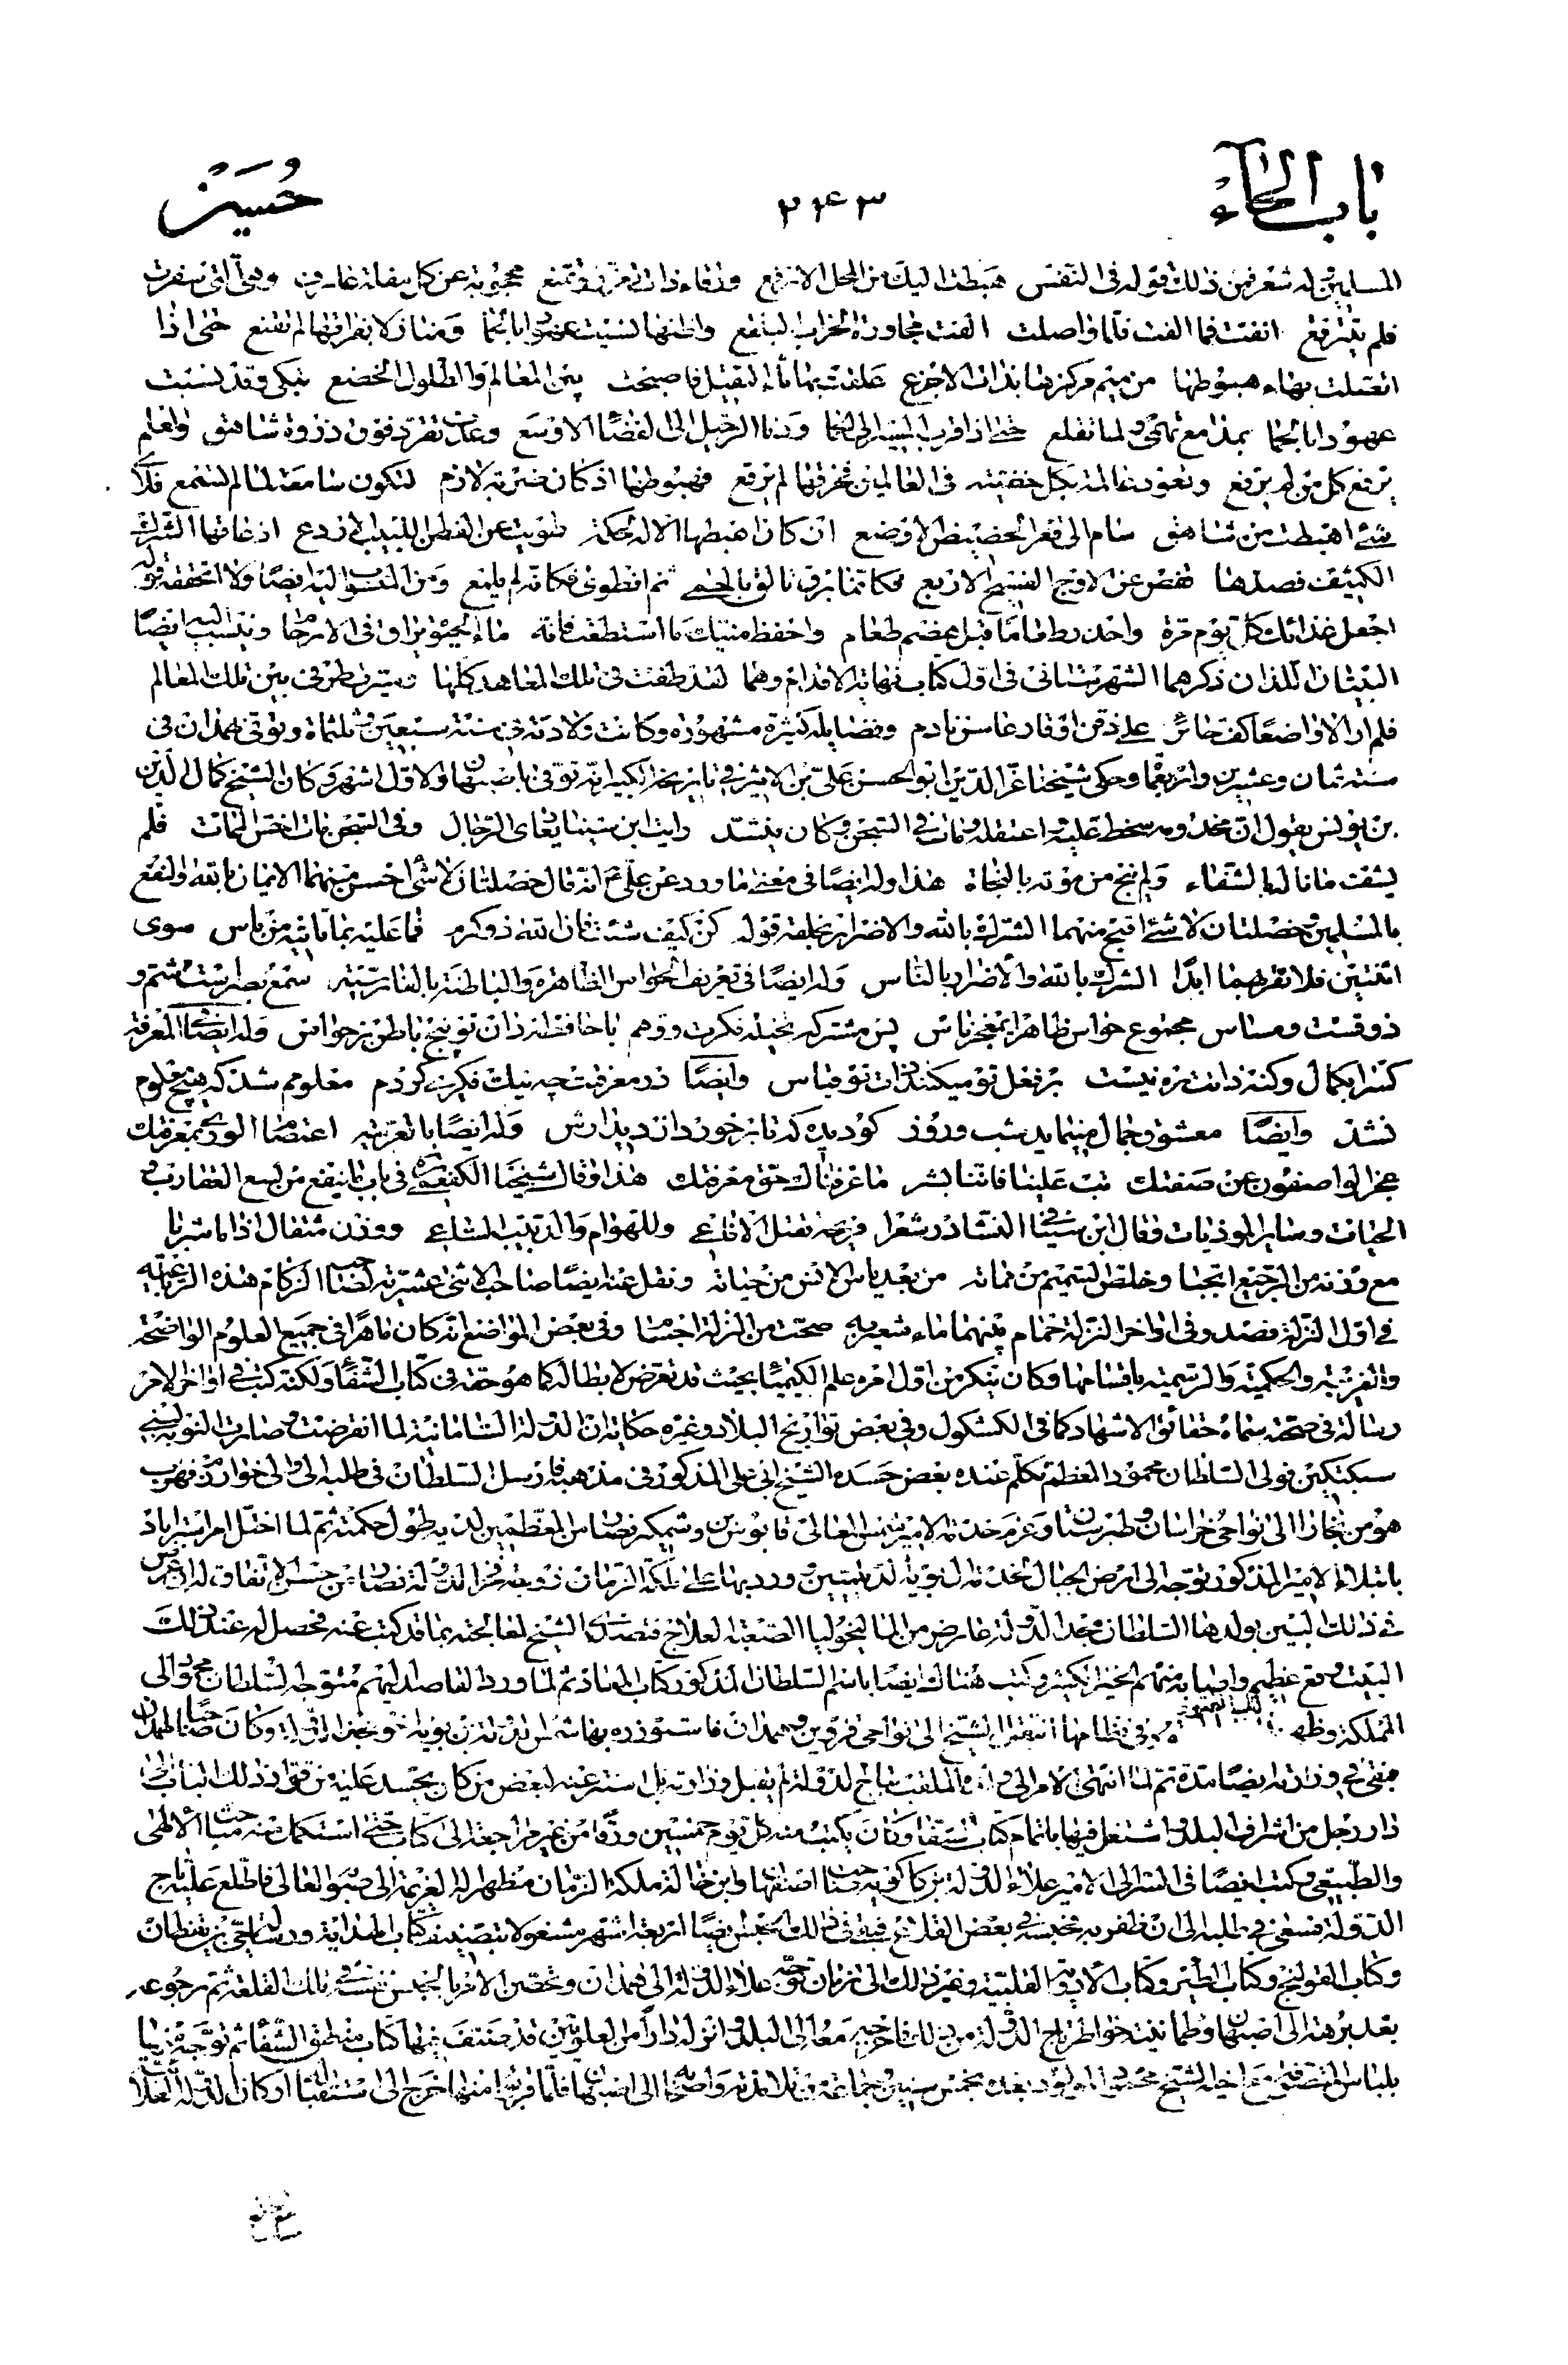 باب الحاء
٢٤٣
حسين
المسلمين وله شعر فمن ذلك قوله فى النفس هبطت اليك من المحل الارفع ورقاء ذات تعزز وتمنع محجوبة عن كل مقلة عارف وهى التى سفرت
فلم تتبرقع انفت فما الفت فلما واصلت الفت مجاورة الخراب البلقع واظنها نسيت عهودا بالحمى ومنازلا بفراقها لم تقنع حتى اذا
اتصلت بهاء هبوطها من ميم مركزها بذات الاجرع علقت بها ثاء الثقيل فاصبحت بين المعالم والطلول الخضع تبكى وقد نسيت
عهودا بالحمى بمدامع تهمى ولما تقلع حتى اذا قرب المسير الى الحمى ودنا الرحيل الى الفضاء الاوسع وغدت تغرد فوق ذروة شاهق والعلم
يرفع كل من لم يرفع وتعود عالمة بكل خفية فى العالمين فخرقها لم يرقع فهبوطها اذ كان ضربة لازم لتكون سامعة لما لم تسمع فلاى
شئ اهبطت من شاهق سام الى قعر الحضيض الاوضع ان كان اهبطها الاله لحكمة طويت عن الفطن اللبيب الاروع اذ عاقها الشرك
الكثيف فصدها قفص عن الاوج الفسيح الاربع فكانما برق تالق بالحمى ثم انطوى فكانه لم يلمع ومن المنسوب اليه ايضا ولا اتحققه قوله
اجعل غذائك كل يوم مرة واحذر طعاما قبل هضم طعام واحفظ منيك ما استطعت فانه ماء الحيوة يراق فى الارحام وينسب اليه ايضا
البيتان اللذان ذكرهما الشهرستانى فى اول كتاب نهاية الاقدام وهما لقد طفت فى تلك المعاهد كلها وسيرت طرفى بين تلك المعالم
فلم ار الا واضعا كف حائر على ذقن او قارعا سن نادم وفضايله كثيرة مشهورة وكانت ولادته فى سنة سبعين وثلثمائة وتوفى بهمدان فى
سنة ثمان وعشرين واربعمائة وحكى شيخنا عز الدين ابو الحسن على بن الاثير فى تاريخه الكبير انه توفى باصبهان والاول اشهر وكان الشيخ كمال الدين
بن يونس يقول ان مخدومه سخط عليه واعتقله ومات فى السجن وكان ينشد رايت ابن سينا يعادى الرجال وفى السجن مات اخس الممات فلم
يشف ما ناله بالشفاء ولم ينج من موته بالنجاة هذا وله ايضا فى معنى ما ورد عن على ع انه قال خصلتان لا شئ احسن منهما الايمان بالله والنفع
بالمسلمين وخصلتان لا شئ اقبح منهما الشرك بالله والاضرار بخلقه قوله كن كيف شئت فان الله ذو كرم فما عليه بما تاتيه من باس سوى
اثنتين فلا تقربهما ابدا الشرك بالله والاضرار بالناس وله ايضا فى تعريف الحواس الظاهرة والباطنة بالفارسية سمع بصر است وشم و
ذوقست ومساس مجموع حواس ظاهر اى پنج بناس پس مشترك تخيله فكرت ووهم با حافظه ذان تو پنج باطن ز حواس وله ايضا فى المعرفة
كس را بكمال وكنه ذاتت ره نيست بر فعل تو ميكنند ذات تو قياس وايضا در معرفتت چه نيك فكرى كردم معلومم شد كه هيچ معلوم
نشد وايضا معشوق جمال مينمايد شب وروز كو ديده كه تا بر خورد از ديدارش وله ايضا بالعربية اعتصام الورى بمعرفتك
عجز الواصفون عن صفتك تب علينا فاننا بشر ما عرفناك حق معرفتك هذا وقال شيخنا الكفعمى فى باب ما ينفع من لسع العقارب و
الحيات وساير الموذيات وقال ابن سينا فى النشادر شعرا فريحه تقتل الافاعى وللهوام والدبيب الساعى ووزن مثقال اذا ما شربا
مع وزنه من الرجيع انجبا وخلص السميم من مماته من بعد ياس الانس من حياته ونقل عنه ايضا صاحب الاثنى عشرية لصاحب الزكام هذه الرباعية
فى اول النزلة فصد وفى اواخر النزلة حمام بينهما ماء شعير به صحت من النزلة اجسام وفى بعض المواضع انه كان ماهرا فى جميع العلوم الواضحة
والغريبة والحكمية والرسمية باقسامها وكان ينكر من اول امره علم الكيمياء بحيث قد تعرض لابطاله كما هو حقه فى كتاب الشفاء ولكنه كتب فى اواخر الامر
رسالة فى صحته سماه حقائق الاشهاد كما فى الكشكول وفى بعض تواريخ البلاد وغيره حكاية ان الدولة السامانية لما انقرضت وصارت النوبة لبنى
سبكتكين تولى السلطان محمود المعظم تكلم عنده بعض حسدة الشيخ ابى على المذكور فى مذهبه فارسل السلطان فى طلبه الى والى خوارزم فهرب
هو من بخارا الى نواحى خراسان وطبرستان وعزم خدمة الامير شمس المعالى قابوس بن وشمكير فصار من المعظمين لديه طول حكمته ثم لما اختل امر استراباد
بابتلاء الامير المذكور توجه الى ارض الجبال لخدمة ال بويه الديلميين وورد بها على ملكة الزمان زوجة فخر الدولة فصار من حسن الاتفاق له ان عرض
فى ذلك البين بولدها السلطان مجد الدولة عارض من الماليخوليا الصعبة العلاج فتصدى الشيخ لمعالجته بما قد كتب عنه فحصل له عند تلك
البيت وقع عظيم واصابه منهم الخير الكثير وكتب هناك ايضا باسم السلطان المذكور كتاب المعاد ثم لما ورد القاصد اليهم متوجه السلطان محمود الى
المملكة وظهر فى نظامها انتقل الشيخ الى نواحى قزوين وهمدان فاستوزره بها شمس الدولة بن بويه اخو مجد الدولة وكان صاحب همدان
فبقى فى وزارته ايضا مدة ثم لما انتهى الامر الى ولده الملقب بتاج الدولة لم يقبل وزارته بل استتر عنه لبعض من كان يحسد عليه من قوله ذلك الباب فى
دار رجل من اشراف البلد واشتغل فيها باتمام كتاب الشفاء وكان يكتب منه كل يوم خمسين ورقا من غير مراجعة الى كتاب حتى استكمل منه مباحث الالهى
والطبيعى وكتب ايضا فى السر الى الامير علاء الدولة بن كاكويه صاحب اصفهان وابن خالة ملكة الزمان مظهرا له العزيمة الى صوبه العالى فاطلع عليه تاج
الدولة فسعى فى طلبه الى ان ظفر به فحبسه فى بعض القلاع فبقى فى ذلك الحبس ايضا اربعة اشهر مشغولا بتصنيف كتاب الهداية ورسالة حى بن يقظان
وكتاب القولنج وكتاب الطير وكتاب الادوية القلبية وغير ذلك الى زمان توجه علاء الدولة الى همدان وتحصن الامر بالحبس نفسه فى تلك القلعة ثم رجوعه
بعد برهة الى اصبهان وطمانينة خواطر تاج الدولة من ذلك فاخرجه معه الى البلد وانزله دارا من العلويين قد صنف فيها كتاب منطق الشفاء ثم توجه منها
بلباس المتصوفة مع اخيه الشيخ محمود المولود بعده بخمس سنين وجماعة من تلامذته واصحابه الى اصبهان فلما قرب منها خرج الى استقباله اركان الدولة العلائية